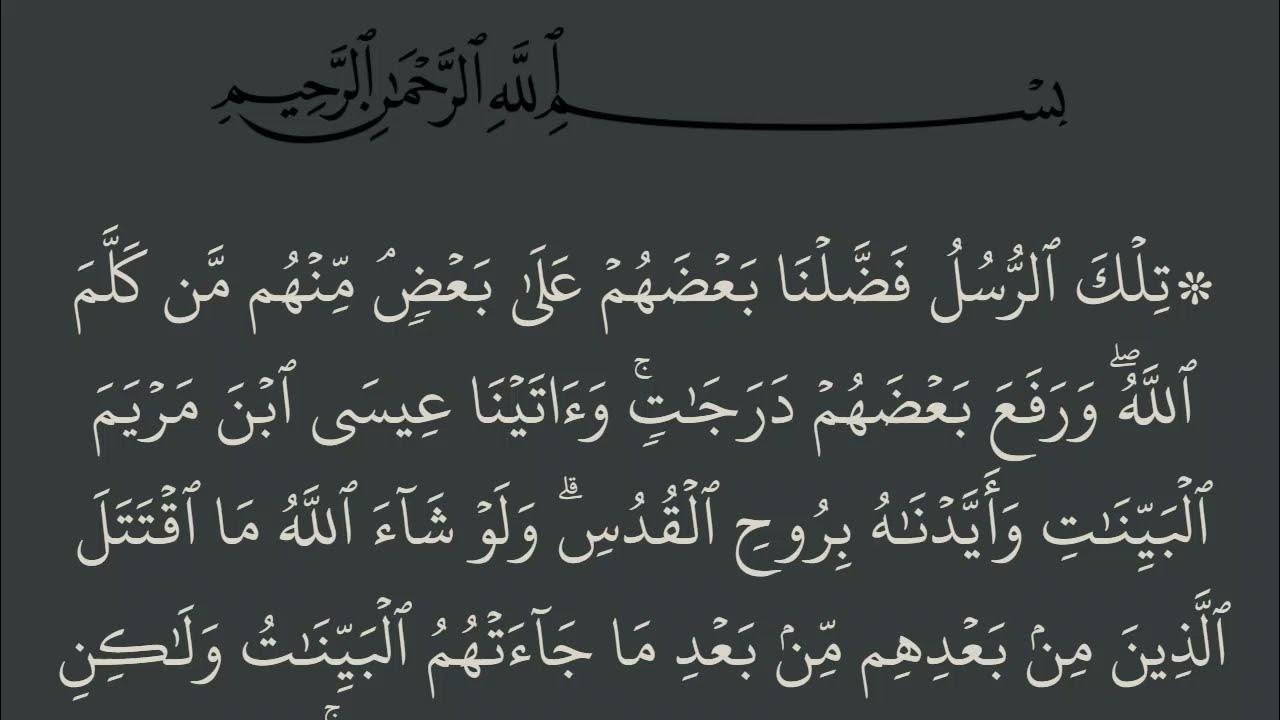 بِسْمِ ٱللَّهِ ٱلرَّحْمَٰنِ ٱلرَّحِيمِ
۞تِلْكَ ٱلرُّسُلُ فَضَّلْنَا بَعْضَهُمْ عَلَىٰ بَعْضٍۢ مِّنْهُم مَّن كَلَّمَ
ٱللَّهُ ۖ وَرَفَعَ بَعْضَهُمْ دَرَجَٰتٍۢ ۚ وَءَاتَيْنَا عِيسَى ٱبْنَ مَرْيَمَ
ٱلْبَيِّنَٰتِ وَأَيَّدْنَٰهُ بِرُوحِ ٱلْقُدُسِ ۗ وَلَوْ شَآءَ ٱللَّهُ مَا ٱقْتَتَلَ
ٱلَّذِينَ مِنۢ بَعْدِهِم مِّنۢ بَعْدِ مَا جَآءَتْهُمُ ٱلْبَيِّنَٰتُ وَلَٰكِنِ